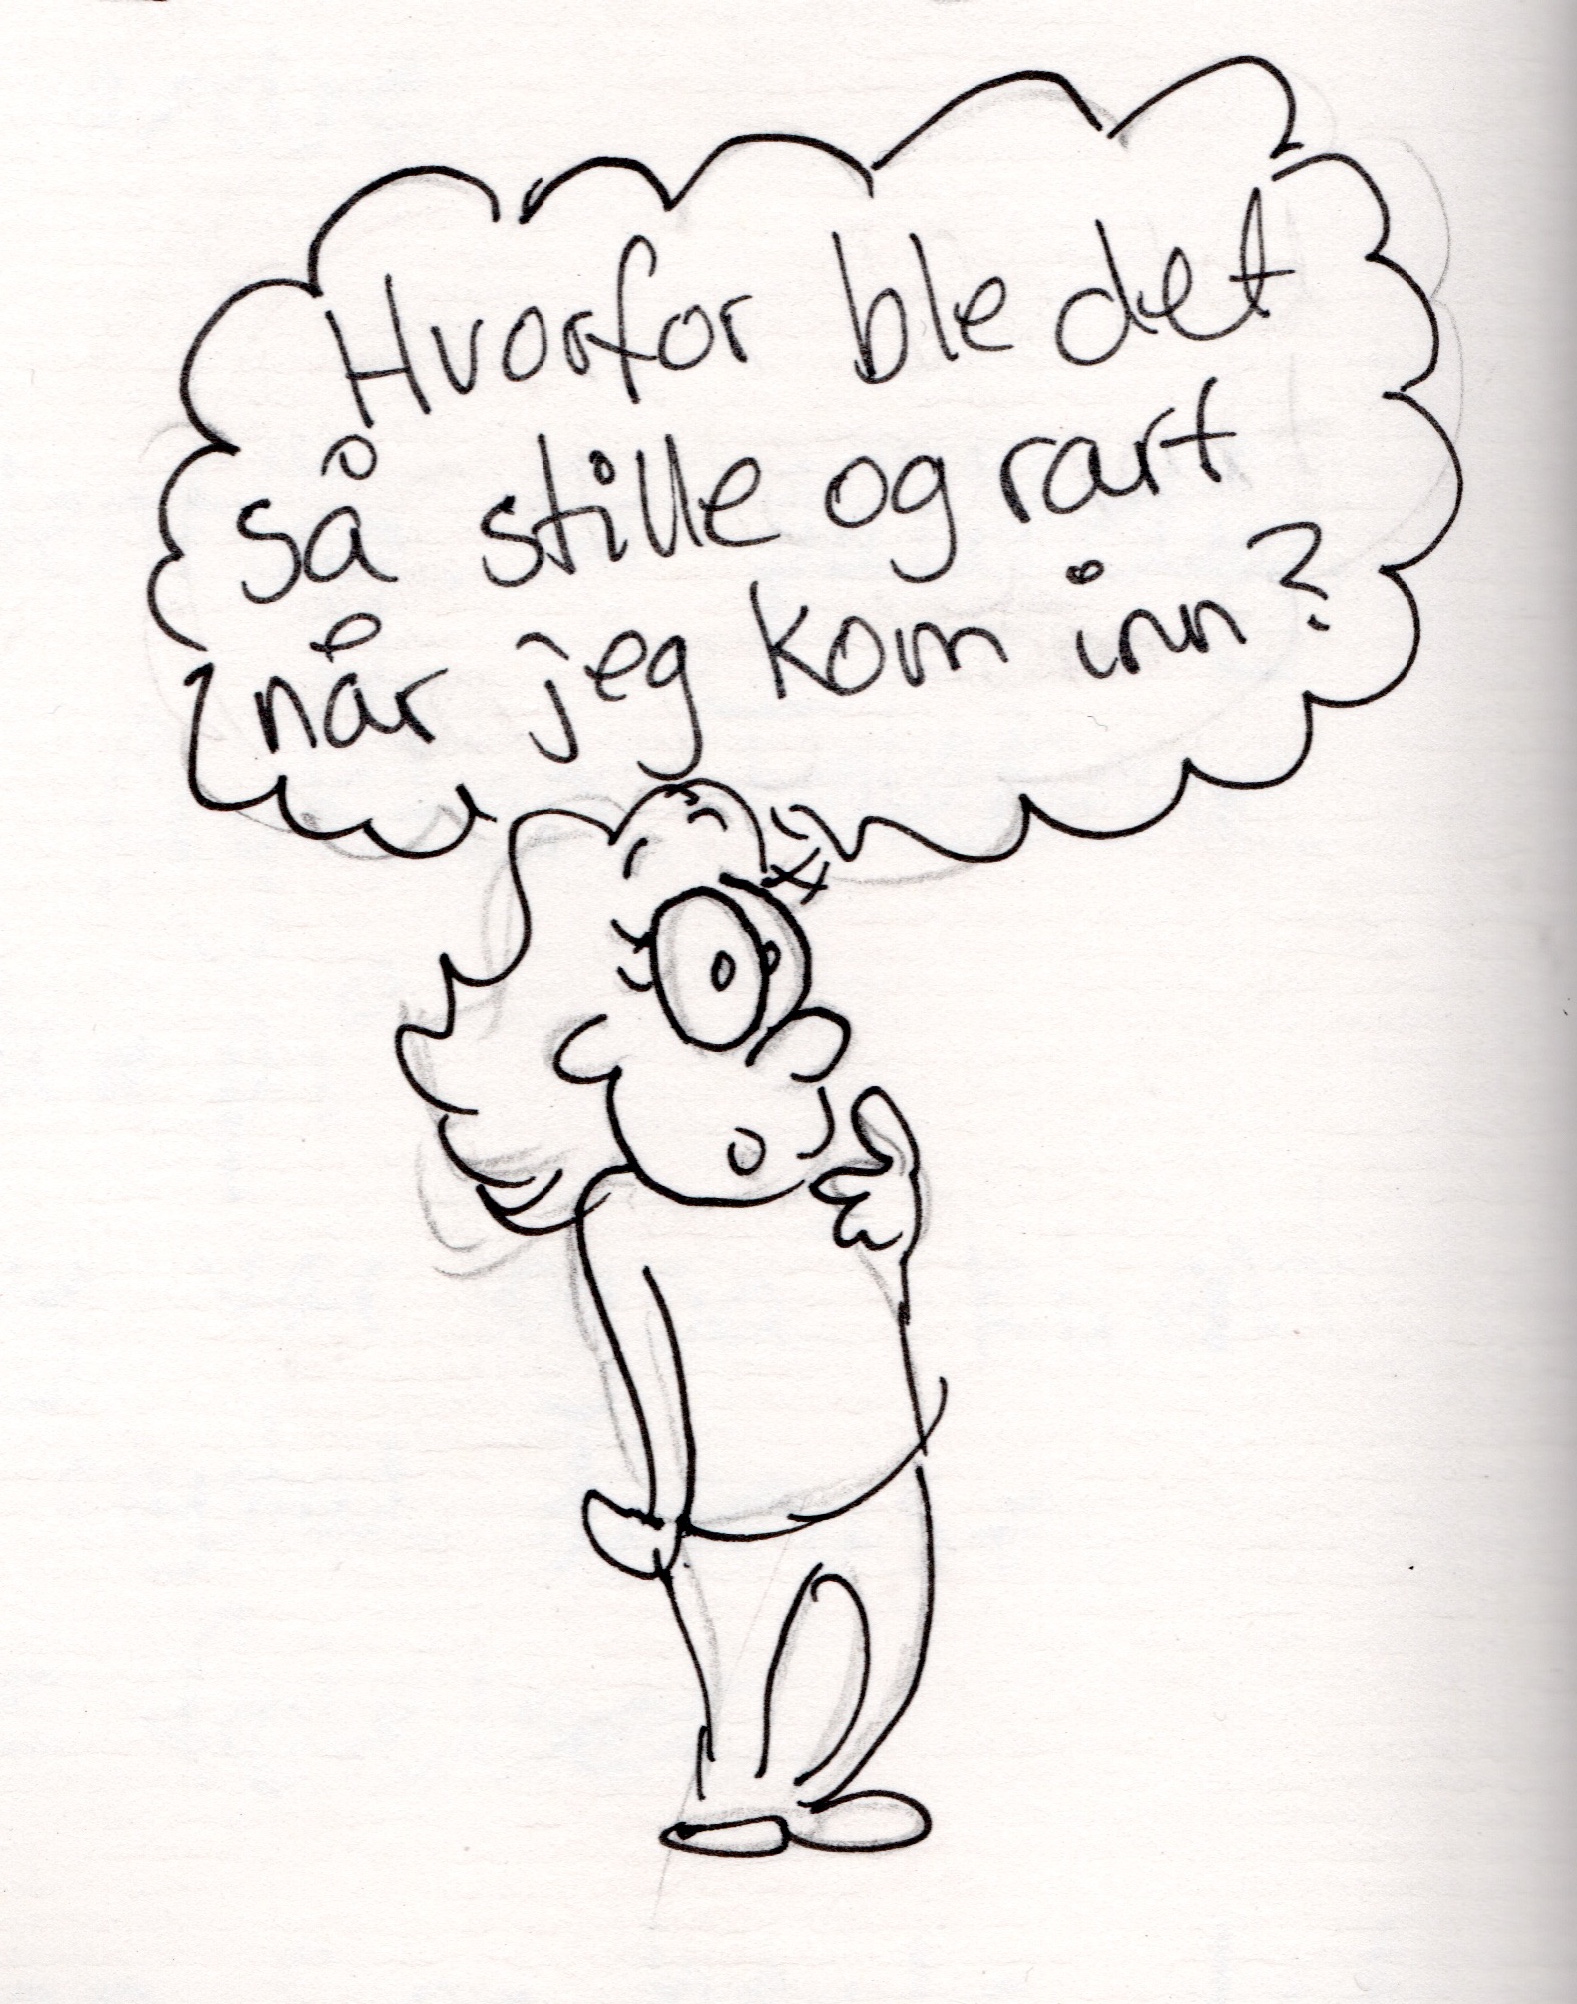 Hvorfor ble det
så stille og rart
når jeg kom inn?